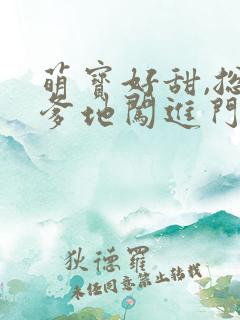 萌寶好甜,總
爹地闖進門
狄德羅
未經同意禁止轉載